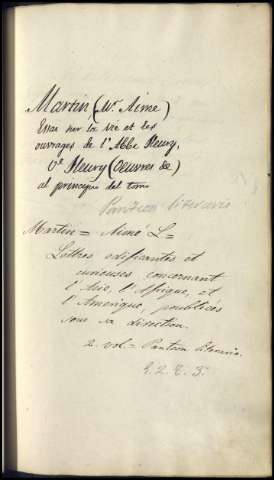 Martin (Mr. Aime)
Essai sur la vie et des
ouvrages de l'Abbe Fleury,
Ve Fleury (Oeuvres de)
al principio del tomo
Panteon literario
Martin = Aimé L=
Lettres edifiantes et
curieuses concernant
l'Asie, l'Afrique, et
l'Amerique, publiées
sous sa direction.
2. vol = Panteon literario.